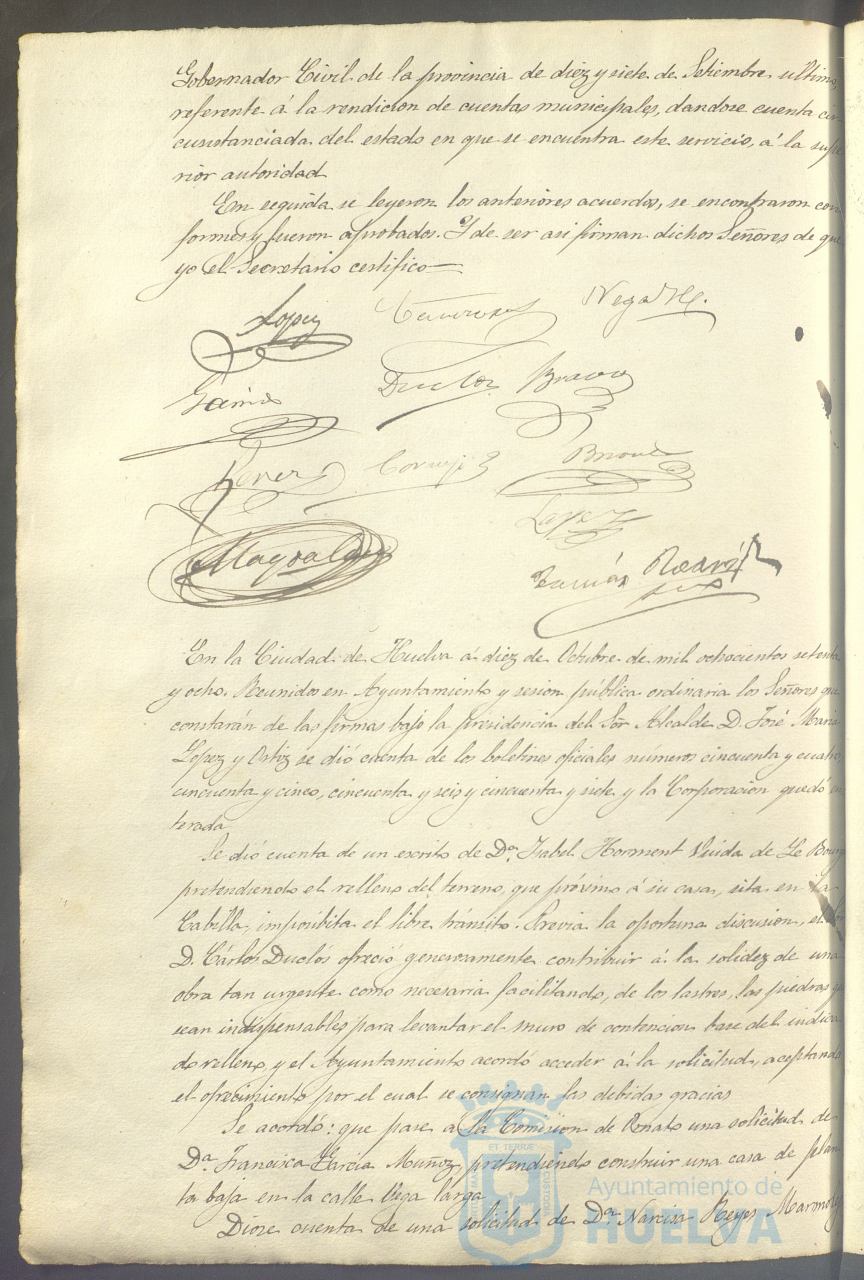 Gobernador Civil de la provincia de diez y siete de Setiembre ultimo,
referente á la rendicion de cuentas municipales, dandose cuenta cir
cunstanciada del estado en que se encuentra este servicio, á la supe
rior autoridad
En seguida se leyeron los anteriores acuerdos, se encontraron con
formes y fueron aprobados. Y de ser asi firman dichos Señores de que
yo el Secretario certifico
Lopez
Garcia Duclos Bravo
Perez Cornejo
Lopez
En la Ciudad de Huelva á diez de Octubre de mil ochocientos setenta
y ocho. Reunidos en Ayuntamiento y sesion pública ordinaria los Señores que
constarán de las firmas bajo la presidencia del Sor Alcalde D. José Maria
Lopez y Ortiz se dió cuenta de los boletines oficiales números cincuenta y cuatro,
cincuenta y cinco, cincuenta y seis y cincuenta y siete y la Corporacion quedó en
terada
Se dió cuenta de un escrito de Da. Isabel Viuda de Le Bourg
pretendiendo el relleno del terreno, que próximo á su casa, sita en la
Cabilla, imposibita el libre tránsito. Previa la oportuna discusion, el Sor
D. Cárlos Duclós ofreció generosamente contribuir á la solidez de una
obra tan urgente como necesaria facilitando, de los lastres, las piedras q
sean indispensables para levantar el muro de contencion base del indica
do relleno, y el Ayuntamiento acordó acceder á la solicitud, aceptando
el ofrecimiento por el cual se consignan las debidas gracias
Se acordó: que pase a la Comision de Ornato una solicitud de
Da. Francisca Garcia Muñoz, pretendiendo construir una casa de plan
ta baja en la calle Vega larga
Diose cuenta de una solicitud de Da. Narcisa Reyes
ET TERRÆ
Ayuntamiento de
HUELVA